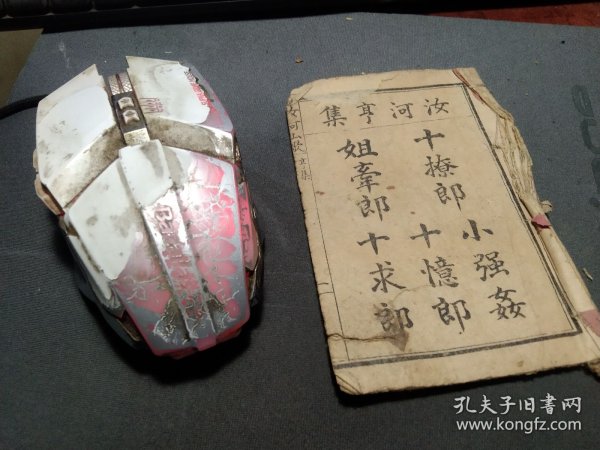 汝河亨集
十撩郎
小强姦
十憶郎
姐牽郎
十求郎
孔夫子旧书网
www.kongfz.com